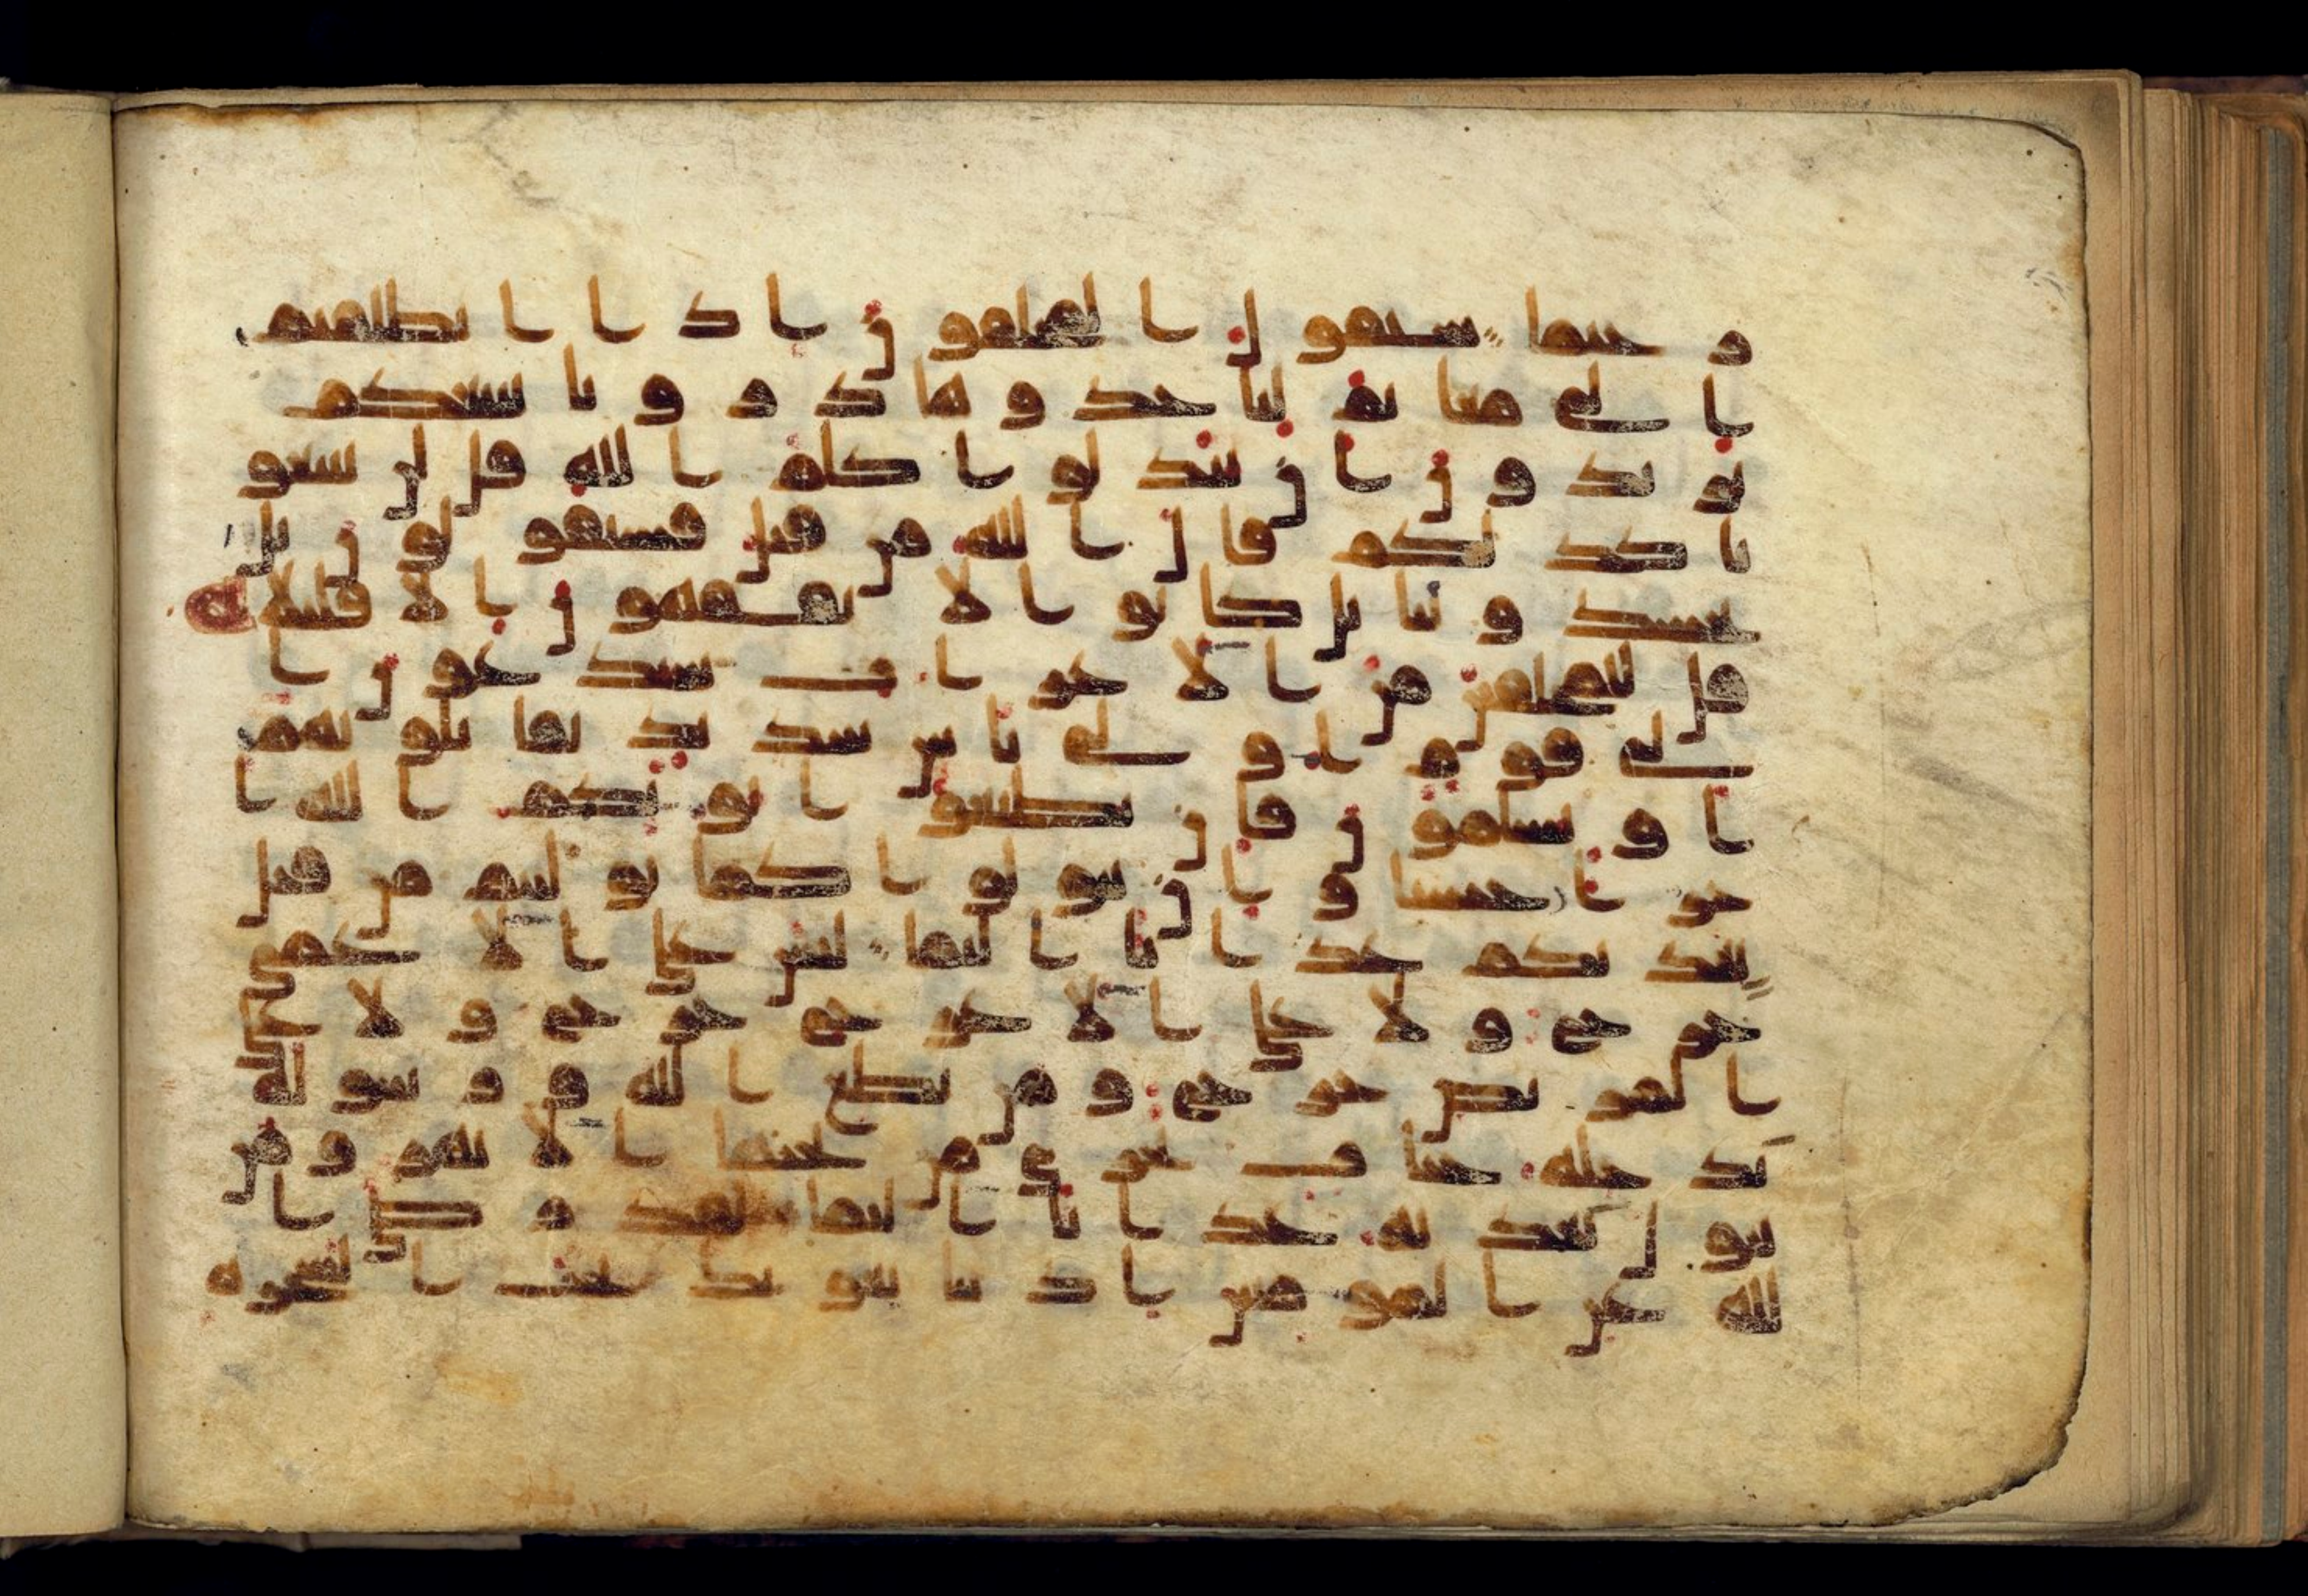 رحيما سيقول المخلفون اذا انطلقتم
الى مغانم لتاخذوها ذرونا نتبعكم
يريدون ان يبدلوا كلم الله قل لن تتبعو
نا كذلكم قال الله من قبل فسيقولون بل
تحسدوننا بل كانوا لا يفقهون الا قليلا
قل للمخلفين من الاعراب ستدعون ا
لى قوم اولى باس شديد تقاتلونهم
او يسلمون فان تطيعوا يوتكم الله ا
جرا حسنا وان تتولوا كما توليتم من قبل
يعذبكم عذابا اليما ليس على الاعمى
حرج ولا على الاعرج حرج ولا على
المريض حرج ومن يطع الله ورسوله
يدخله جنات تجري من تحتها الانهر ومن
يتول يعذبه عذابا اليما لقد رضى ا
لله عن المومنين اذ يبايعونك تحت الشجرة